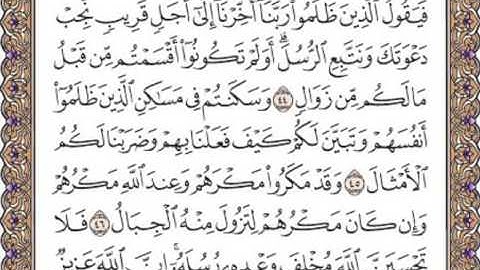 فَيَقُولُ ٱلَّذِينَ ظَلَمُوا۟ رَبَّنَآ أَخِّرْنَآ إِلَىٰٓ أَجَلٍ قَرِيبٍ نُّجِبْ
دَعْوَتَكَ وَنَتَّبِعِ ٱلرُّسُلَ ۗ أَوَلَمْ تَكُونُوٓا۟ أَقْسَمْتُم مِّن قَبْلُ
مَا لَكُم مِّن زَوَالٍ ٤٤ وَسَكَنتُمْ فِى مَسَـٰكِنِ ٱلَّذِينَ ظَلَمُوٓا۟
أَنفُسَهُمْ وَتَبَيَّنَ لَكُمْ كَيْفَ فَعَلْنَا بِهِمْ وَضَرَبْنَا لَكُمُ
ٱلْأَمْثَالَ ٤٥ وَقَدْ مَكَرُوا۟ مَكْرَهُمْ وَعِندَ ٱللَّهِ مَكْرُهُمْ
وَإِن كَانَ مَكْرُهُمْ لِتَزُولَ مِنْهُ ٱلْجِبَالُ ٤٦ فَلَا
تَحْسَبَنَّ ٱللَّهَ مُخْلِفَ وَعْدِهِۦ رُسُلَهُۥٓ ۗ إِنَّ ٱللَّهَ عَزِيزٌ